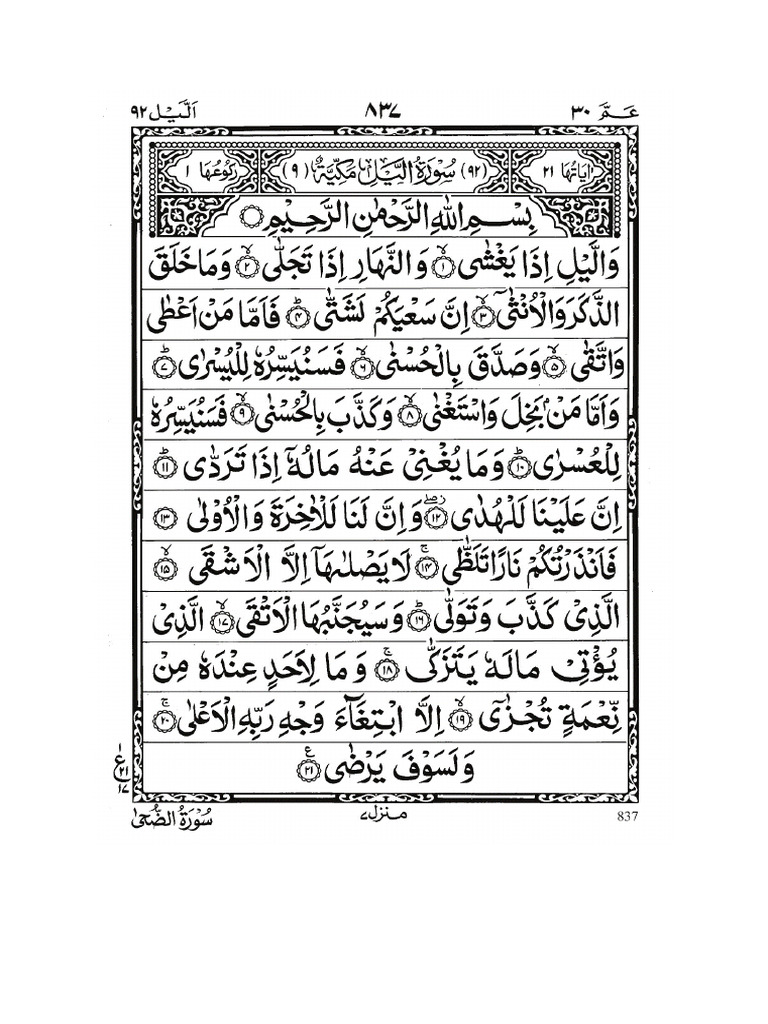 عَـمَّ ٣٠
٨٣٧
اَلَّيْل ٩٢
اٰيَاتُهَا ٢١
(٩٢) سُوْرَةُ الَّيْلِ مَكِّيَّةٌ (٩)
رُكُوْعُهَا ١
بِسْمِ اللّٰهِ الرَّحْمٰنِ الرَّحِيْمِ
وَالَّيْلِ اِذَا يَغْشٰى ۙ‏﴿۱﴾ وَالنَّهَارِ اِذَا تَجَلّٰى ۙ‏﴿۲﴾ وَمَا خَلَقَ
الذَّكَرَ وَالْاُنْثٰٓى ۙ‏﴿۳﴾ اِنَّ سَعْيَكُمْ لَشَتّٰى ؕ‏﴿۴﴾ فَاَمَّا مَنْ اَعْطٰى
وَاتَّقٰى ۙ‏﴿۵﴾ وَصَدَّقَ بِالْحُسْنٰى ۙ‏﴿۶﴾ فَسَنُيَسِّرُهٗ لِلْيُسْرٰى ؕ‏﴿۷﴾
وَاَمَّا مَنْۢ بَخِلَ وَاسْتَغْنٰى ۙ‏﴿۸﴾ وَكَذَّبَ بِالْحُسْنٰى ۙ‏﴿۹﴾ فَسَنُيَسِّرُهٗ
لِلْعُسْرٰى ؕ‏﴿۱۰﴾ وَمَا يُغْنِىْ عَنْهُ مَالُهٗٓ اِذَا تَرَدّٰى ؕ‏﴿۱۱﴾
اِنَّ عَلَيْنَا لَلْهُدٰى ۖ‏﴿۱۲﴾ وَاِنَّ لَنَا لَلْاٰخِرَةَ وَالْاُوْلٰى ﴿۱۳﴾
فَاَنْذَرْتُكُمْ نَارًا تَلَظّٰى ۚ‏﴿۱۴﴾ لَا يَصْلٰٮهَاۤ اِلَّا الْاَشْقَى ۙ‏﴿۱۵﴾
الَّذِىْ كَذَّبَ وَتَوَلّٰى ؕ‏﴿۱۶﴾ وَسَيُجَنَّبُهَا الْاَتْقَى ۙ‏﴿۱۷﴾ الَّذِىْ
يُؤْتِىْ مَالَهٗ يَتَزَكّٰى ۚ‏﴿۱۸﴾ وَمَا لِاَحَدٍ عِنْدَهٗ مِنْ
نِّعْمَةٍ تُجْزٰٓى ۙ‏﴿۱۹﴾ اِلَّا ابْتِغَآءَ وَجْهِ رَبِّهِ الْاَعْلٰى ۚ‏﴿۲۰﴾
وَلَسَوْفَ يَرْضٰى ﴿۲۱﴾
ع
٢١
١٧
837
منزل ٧
سُوْرَةُ الضُّحٰى